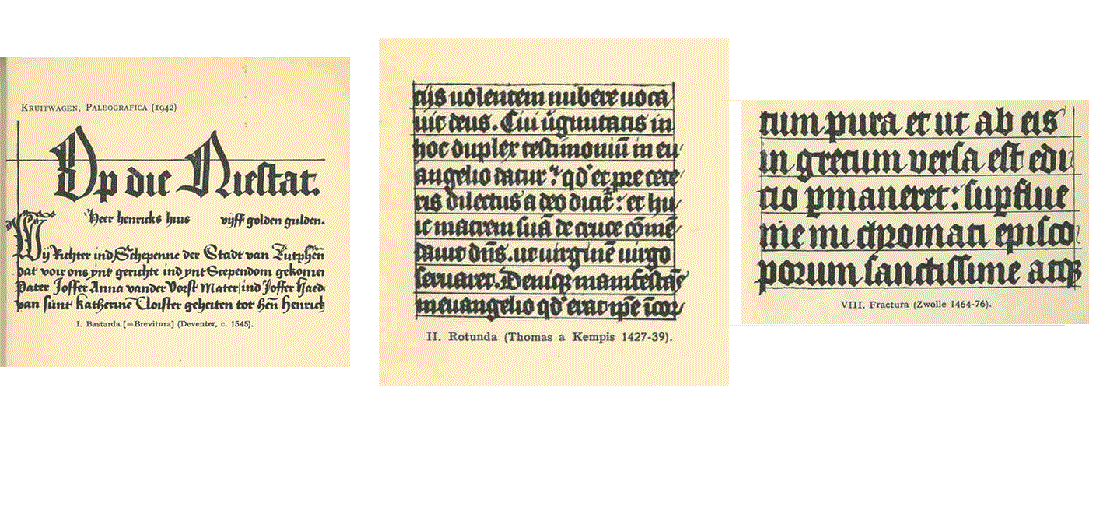 KRUITWAGEN, PALEOGRAFICA [1942)
Op die Niestat.
Heer henricks huus vijff golden gulden.
Wy Richter ind Schepenne der Stadt van Zutphen
dat voir ons ynt gerichte ind ynt Scependom gekomen
Pater Joffer Anna vander Vorst Mater ind Joffer
van sunt Katherine Cloister geheiten tot Hen Henrick
I. Bastarda [=Brevitura] (Deventer, c. 1545).
cijs uolentem nubere uoca
uit deus. Cui uirginitatis in
hoc duplex testimoniū in eu
angelio datur: qd et pre cete
ris dilectus a deo dicit: et hu
ic matrem suā de cruce cōmē
dauit dn̄s. ut uirginē uirgo
seruaret. Deniqꝫ manifestās
in euangelio qd erat ipse
II. Rotunda (Thomas a Kempis 1427-39).
tum pura et ut ab eis
in grecum versa est edi
tio pmaneret: supflue
me mi chromati episco
porum sanctissime atqꝫ
VIII. Fractura (Zwolle 1464-76).